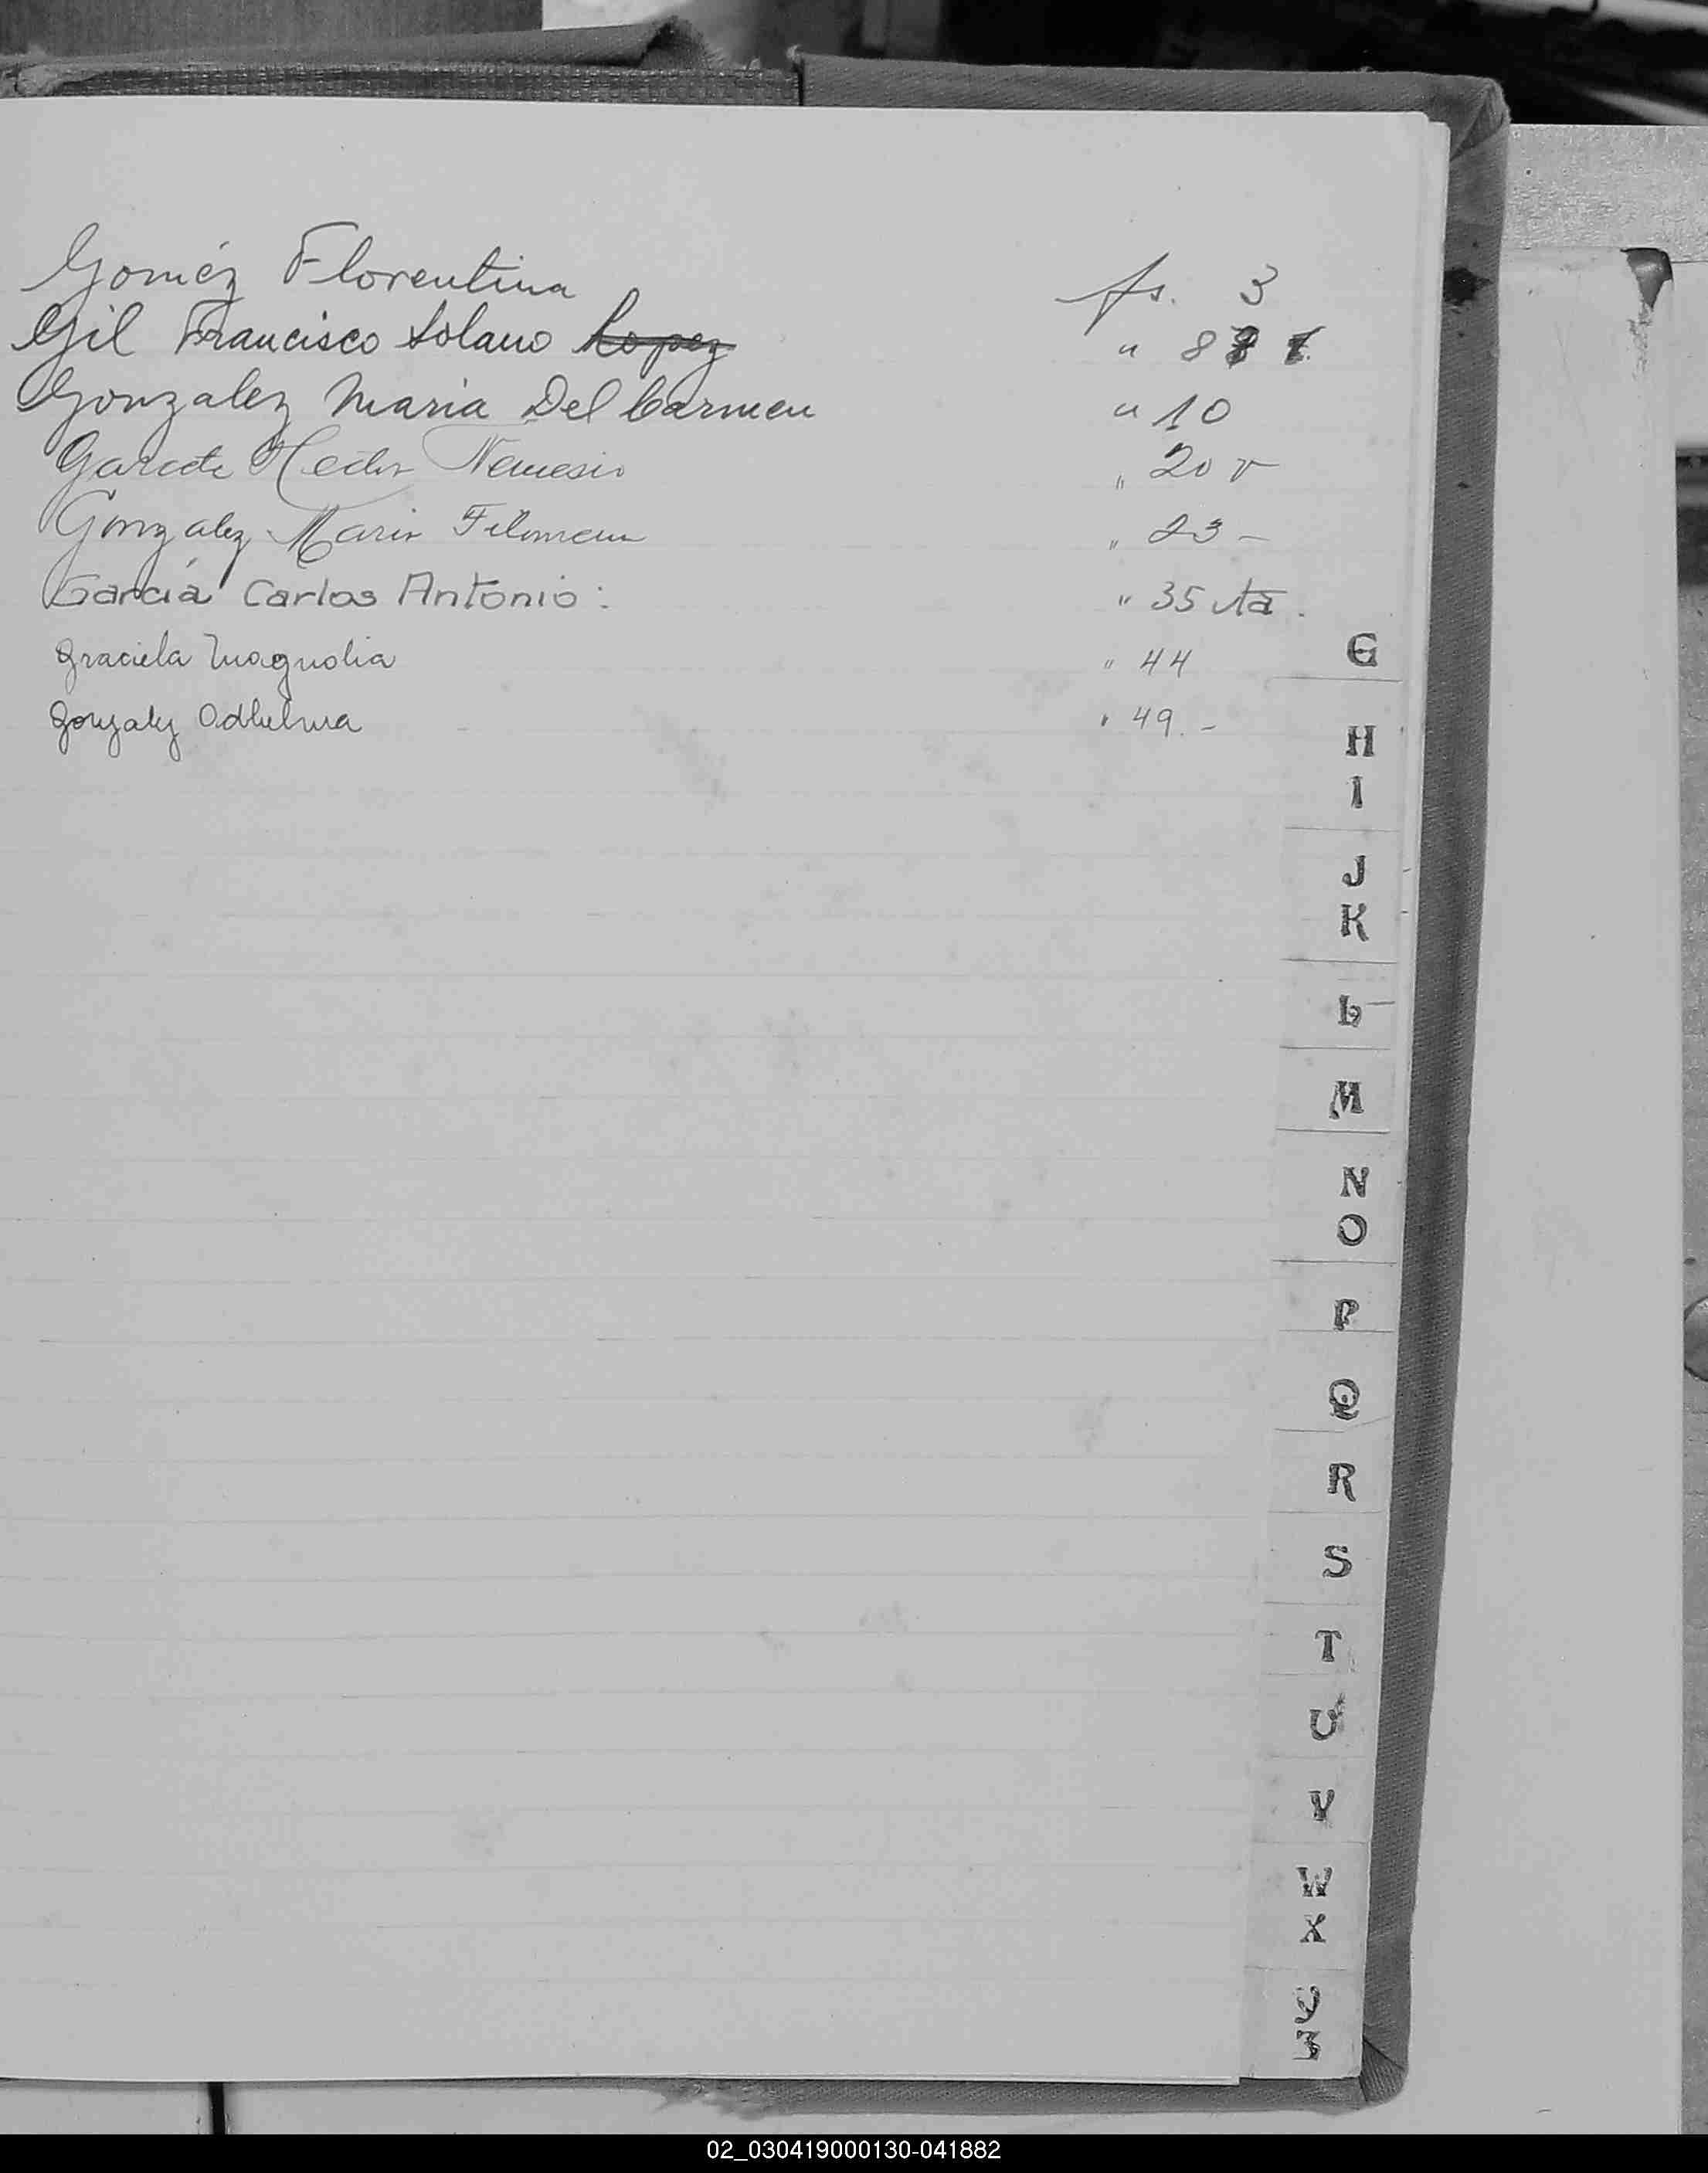 Goméz Florentina fs. 3
Gil Francisco Solano Lopez " 8
Gonzalez Maria Del Carmen " 10
Garcete Hector Nemesio " 20 v
Gonzalez Maria Filomena " 23 –
García Carlos Antonio : " 35 vta.
Graciela Magnolia " 44
Gonzalez Odhelma " 49. –
G
H
I
J
K
L
M
N
O
P
Q
R
S
T
U
V
W
X
Y
Z
02_030419000130-041882